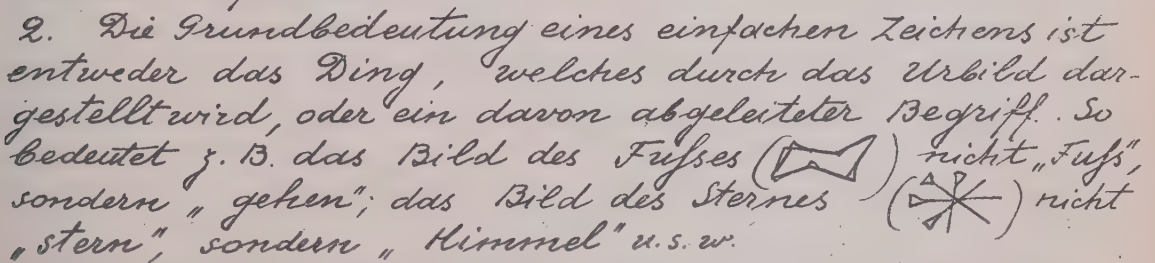 2. Die Grundbedeutung eines einfachen Zeichens ist
entweder das Ding, welches durch das Urbild dar-
gestellt wird, oder ein davon abgeleiteter Begriff. So
bedeutet z. B. das Bild des Fuſses ( ) nicht „Fuſs",
sondern „gehen"; das Bild des Sternes ( ) nicht
„Stern", sondern „Himmel" u. s. w.